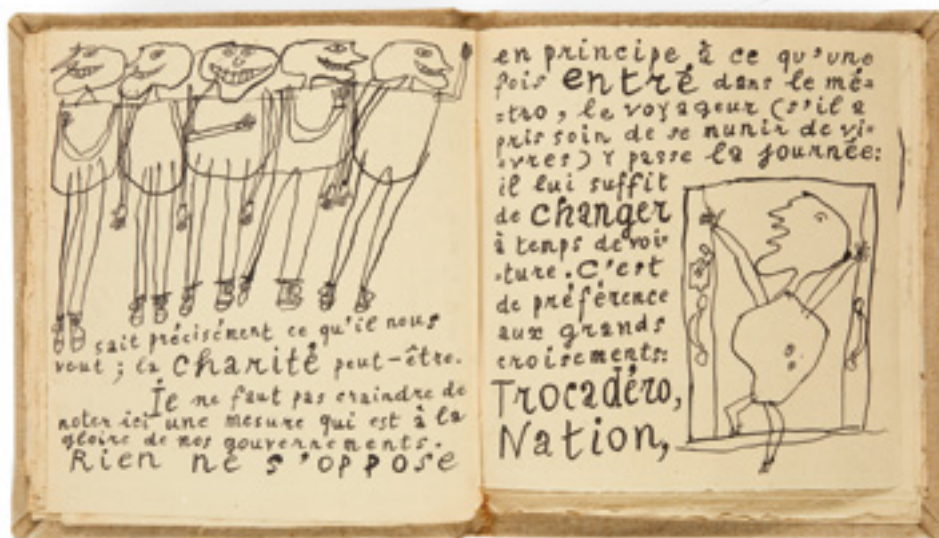 sait précisément ce qu'il nous
veut ; la charité peut-être.
Il ne faut pas craindre de
noter ici une mesure qui est à la
gloire de nos gouvernements.
Rien ne s'oppose
en principe à ce qu'une
fois entré dans le mé-
-tro, le voyageur (s'il a
pris soin de se munir de vi-
-vres) y passe la journée:
il lui suffit
de changer
à temps de voi-
-ture. C'est
de préférence
aux grands
croisements:
Trocadéro,
Nation,